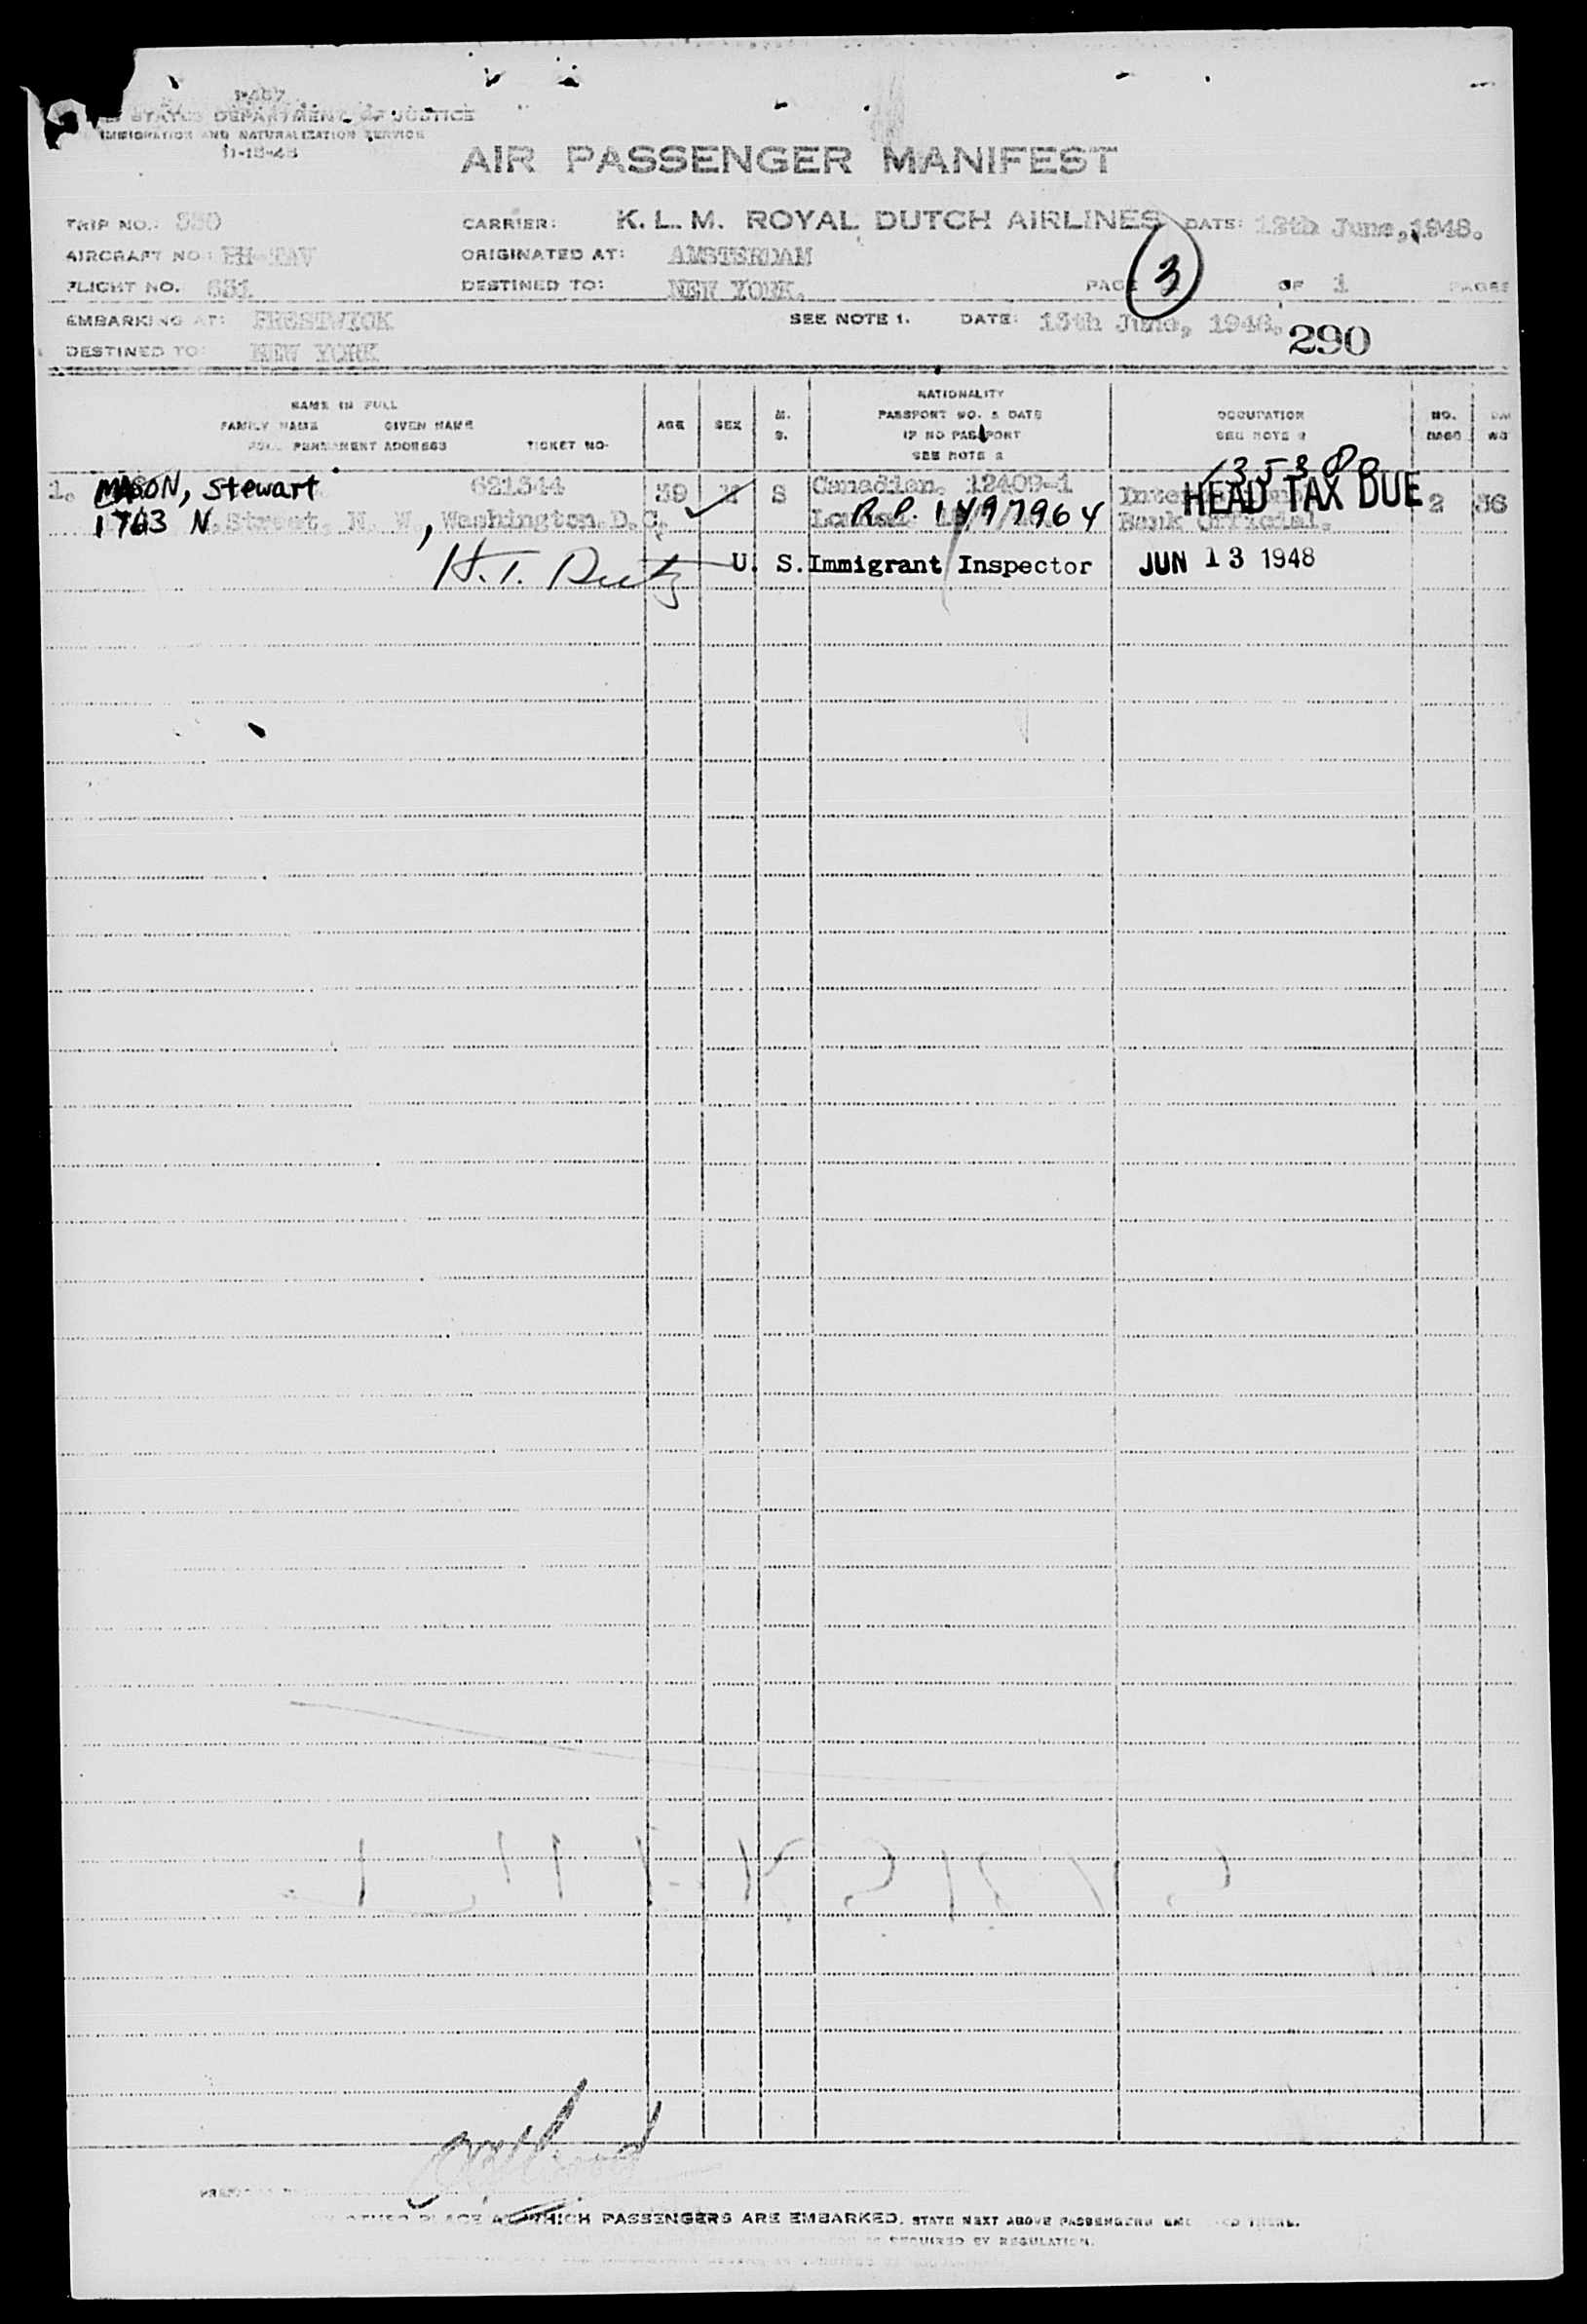 STATES DEPARTMENT OF JUSTICE
IMMIGRATION AND NATURALIZATION SERVICE
AIR PASSENGER MANIFEST
TRIP NO.: 330 CARRIER: K. L. M. ROYAL DUTCH AIRLINES DATE: 12th June, 1948.
AIRCRAFT NO: PH-TAV ORIGINATED AT: AMSTERDAM
FLIGHT NO. 651 DESTINED TO: NEW YORK. PAGE 3 OF 1 PAGES
EMBARKING AT: PRESTWICK SEE NOTE 1. DATE: 13th June, 1948. 290
DESTINED TO: NEW YORK
NAME IN FULL
FAMILY NAME GIVEN NAME
FULL PERMANENT ADDRESS TICKET NO.
AGE
SEX
M.
S.
NATIONALITY
PASSPORT NO. & DATE
IF NO PASSPORT
SEE NOTE 2
OCCUPATION
SEE NOTE 2
NO.
BAGG
1. MASON, Stewart 621344 39 M S Canadian. 12409-1 2 36
1763 N. Street, N. W., Washington.D.C. R.P. 1497964 HEAD TAX DUE
Bank Official.
U. S. Immigrant Inspector JUN 13 1948
OTHER PLACE AT WHICH PASSENGERS ARE EMBARKED, STATE NEXT ABOVE PASSENGERS THERE.
REQUIRED BY REGULATION.